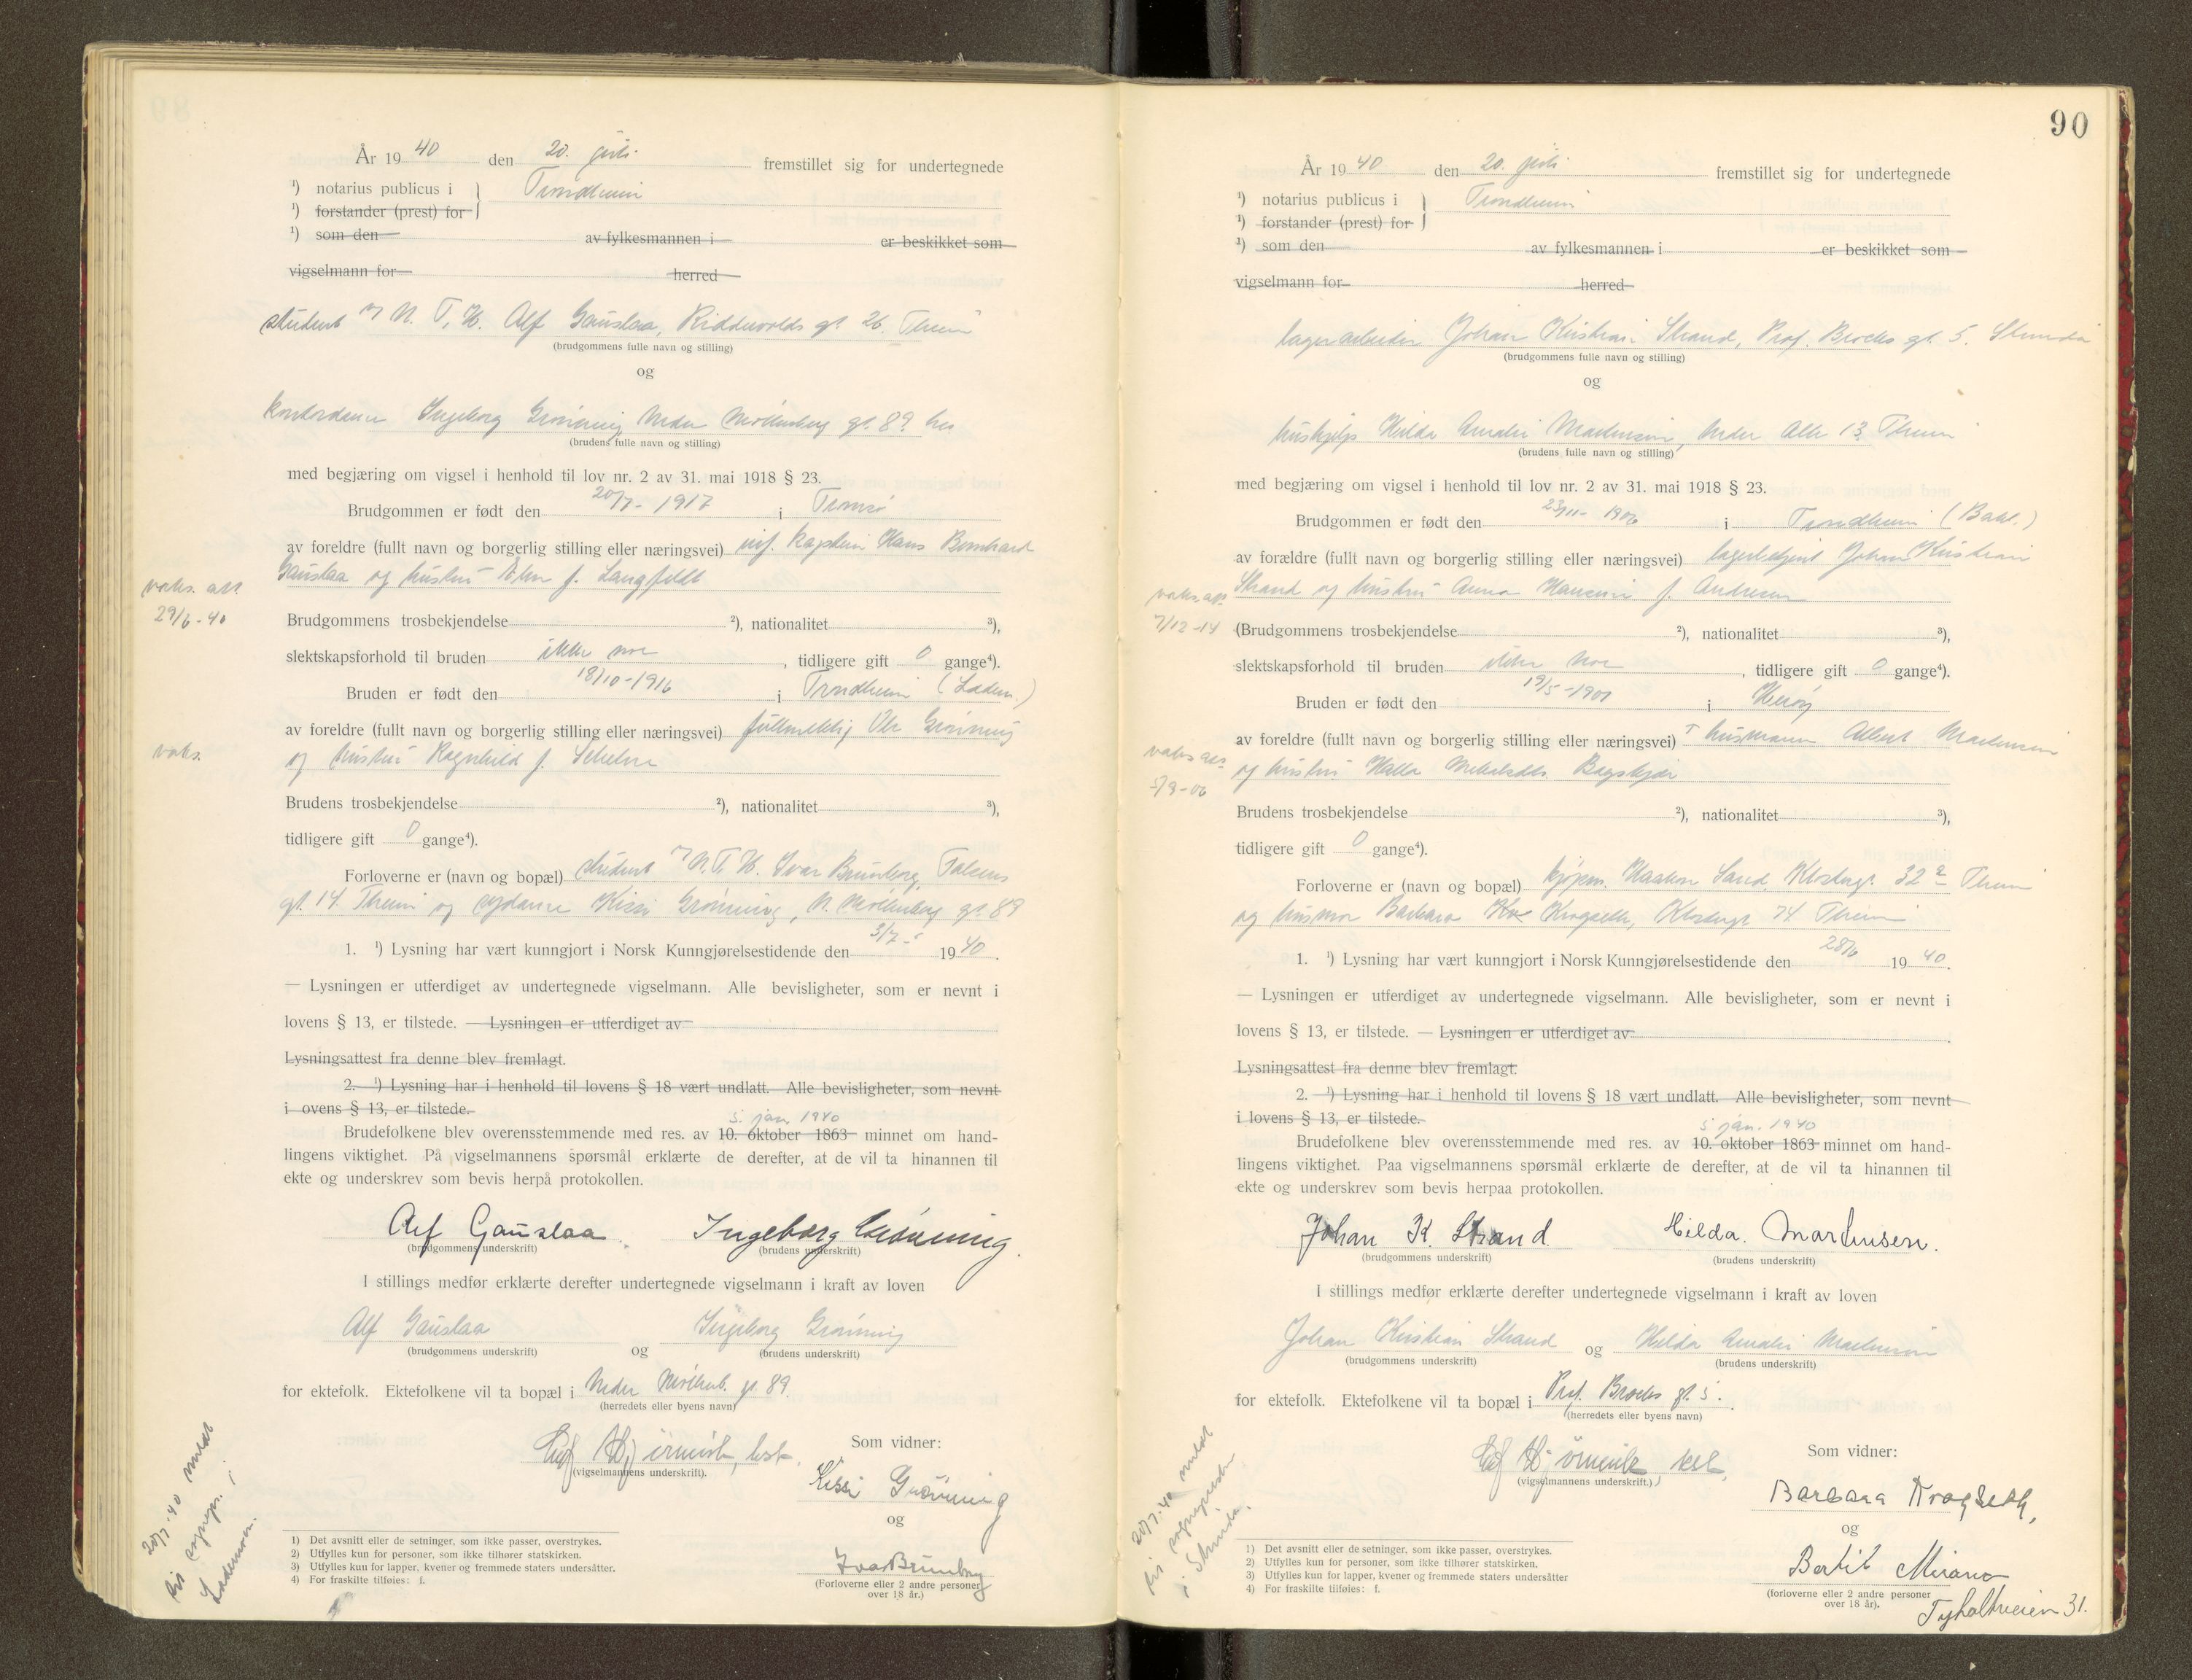 År 1940 den 20. juli fremstillet sig for undertegnede
¹) notarius publicus i } Trondheim
¹) forstander (prest) for
¹) som den av fylkesmannen i er beskikket som
vigselmann for herred
student v/ N. T. H. Alf Gauslaa, Ridderv​olds gt 26. Theim
(brudgommens fulle navn og stilling)
og
kontordame Ingeborg Grønning Nedre Møllenberg gt. 89 her
(brudens fulle navn og stilling)
med begjæring om vigsel i henhold til lov nr. 2 av 31. mai 1918 § 23.
Brudgommen er født den 20/7 - 1917 i Tromsø
av foreldre (fullt navn og borgerlig stilling eller næringsvei) inf. kaptein Hans Bernhard
Gauslaa og hustru f. Langfeldt
vaks. att.
29/6-40
Brudgommens trosbekjendelse ²), nationalitet ³),
slektskapsforhold til bruden ikke noe, tidligere gift 0 gange⁴).
Bruden er født den 18/10-1916 i Trondheim (Ladem.)
av foreldre (fullt navn og borgerlig stilling eller næringsvei) fullmektig Ole Grønning
vaks.
og hustru Ragnhild f.
Brudens trosbekjendelse ²), nationalitet ³),
tidligere gift 0 gange⁴).
Forloverne er (navn og bopæl) student v/ N. T. H. Ivar Brunborg, Falsens
gt. 14. Theim og sydame Kissi Grønning, N. Møllenberg gt. 89
1. ¹) Lysning har vært kunngjort i Norsk Kunngjørelsestidende den 3/7 - 1940.
— Lysningen er utferdiget av undertegnede vigselmann. Alle bevisligheter, som er nevnt i
lovens § 13, er tilstede. — Lysningen er utferdiget av
Lysningsattest fra denne blev fremlagt.
2. ¹) Lysning har i henhold til lovens § 18 vært undlatt. Alle bevisligheter, som nevnt
i ovens § 13, er tilstede.
5. jan. 1940
Brudefolkene blev overensstemmende med res. av 10. oktober 1863 minnet om hand-
lingens viktighet. På vigselmannens spørsmål erklærte de derefter, at de vil ta hinannen til
ekte og underskrev som bevis herpå protokollen.
Alf Gauslaa Ingeborg Grønning.
(brudgommens underskrift) (brudens underskrift)
I stillings medfør erklærte derefter undertegnede vigselmann i kraft av loven
Alf Gauslaa og Ingeborg Grønning
(brudgommens underskrift) (brudens underskrift)
for ektefolk. Ektefolkene vil ta bopæl i Nedre Møllenb. gt. 89.
(herredets eller byens navn)
(vigselmannens underskrift).
Som vidner:
Kissi Grønning
og
Ivar Brunborg
(Forloverne eller 2 andre personer
over 18 år.)
20/7-40 meldt
til sognepr. i
Lademoen.
1) Det avsnitt eller de setninger, som ikke passer, overstrykes.
2) Utfylles kun for personer, som ikke tilhører statskirken.
3) Utfylles kun for lapper, kvener og fremmede staters undersåtter.
4) For fraskilte tilføies: f.
90
År 1940 den 20. juli fremstillet sig for undertegnede
¹) notarius publicus i } Trondheim
¹) forstander (prest) for
¹) som den av fylkesmannen i er beskikket som
vigselmann for herred
lagerarbeider Johan Kristian Strand, Prof. Brochs gt. 5. Strinda
(brudgommens fulle navn og stilling)
og
hushjelp Hilda Amalie Martinsen, Nedre Alle 13 Theim
(brudens fulle navn og stilling)
med begjæring om vigsel i henhold til lov nr. 2 av 31. mai 1918 § 23.
Brudgommen er født den 23/11- 1906 i Trondheim (Bakl.)
av forældre (fullt navn og borgerlig stilling eller næringsvei) lagerbetjent Johan Kristian
Strand og hustru Anna f. Andresen
vaks. att.
7/12-14
(Brudgommens trosbekjendelse ²), nationalitet ³),
slektskapsforhold til bruden ikke noe, tidligere gift 0 gange⁴).
Bruden er født den 19/5-1901 i Herøy
av foreldre (fullt navn og borgerlig stilling eller næringsvei) husmann Albert Martinsen
vaks. att.
og hustru
Brudens trosbekjendelse ²), nationalitet ³),
tidligere gift 0 gange⁴).
Forloverne er (navn og bopæl) Haakon Sand, Klostergt. 32 Theim
og husmor Barbara Krogseth, Klostergt 74 Theim
1. ¹) Lysning har vært kunngjort i Norsk Kunngjørelsestidende den 28/6 1940.
— Lysningen er utferdiget av undertegnede vigselmann. Alle bevisligheter, som er nevnt i
lovens § 13, er tilstede. — Lysningen er utferdiget av
Lysningsattest fra denne blev fremlagt.
2. ¹) Lysning har i henhold til lovens § 18 vært undlatt. Alle bevisligheter, som nevnt
i lovens § 13, er tilstede.
5 jan. 1940
Brudefolkene blev overensstemmende med res. av 10. oktober 1863 minnet om hand-
lingens viktighet. Paa vigselmannens spørsmål erklærte de derefter, at de vil ta hinannen til
ekte og underskrev som bevis herpaa protokollen.
Johan K. Strand Hilda. Martinsen.
(brudgommens underskrift) (brudens underskrift)
I stillings medfør erklærte derefter undertegnede vigselmann i kraft av loven
Johan Kristian Strand og Hilda Amalie Martinsen
(brudgommens underskrift) (brudens underskrift)
for ektefolk. Ektefolkene vil ta bopæl i Prof. Brochs gt. 5.
(herredets eller byens navn)
(vigselmannens underskrift.)
Som vidner:
Barbara Krogseth,
og
Bertil
(forloverne eller 2 andre personer
over 18 år).
Tyholtveien 31.
20/7-40 meldt
til sognepresten
i Strinda.
1) Det avsnitt eller de setninger, som ikke passer, overstrykes.
2) Utfylles kun for personer, som ikke tilhører statskirken.
3) Utfylles kun for lapper, kvener og fremmede staters undersåtter
4) For fraskilte tilføies: f.